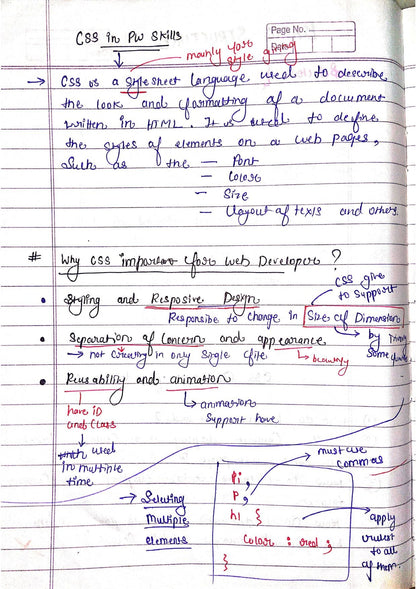 CSS in PW Skills
Page No.
Date
mainly for style giving
→ CSS is a stylesheet language used to describe
the look and formatting of a document
written in HTML. It is used to define
the styles of elements on a web pages,
Such as the — Font
— Colour
— Size
— Layout of texts and others.
# Why CSS important for web Developer ?
CSS give
to support
• Styling and Resposive Design
Responsible to change in Size of Dimension
• Separation of Concern and appearance
→ not Creating in only Single file
→ beauty
by
Some
• Reusability and animation
have ID
and Class
→ animation
Support have
used
in multiple
time
must use
commas
→ Selecting
Multiple
elements
Pi,
P,
h1 {
Colour : red ;
}
apply
rules
to all
of them.